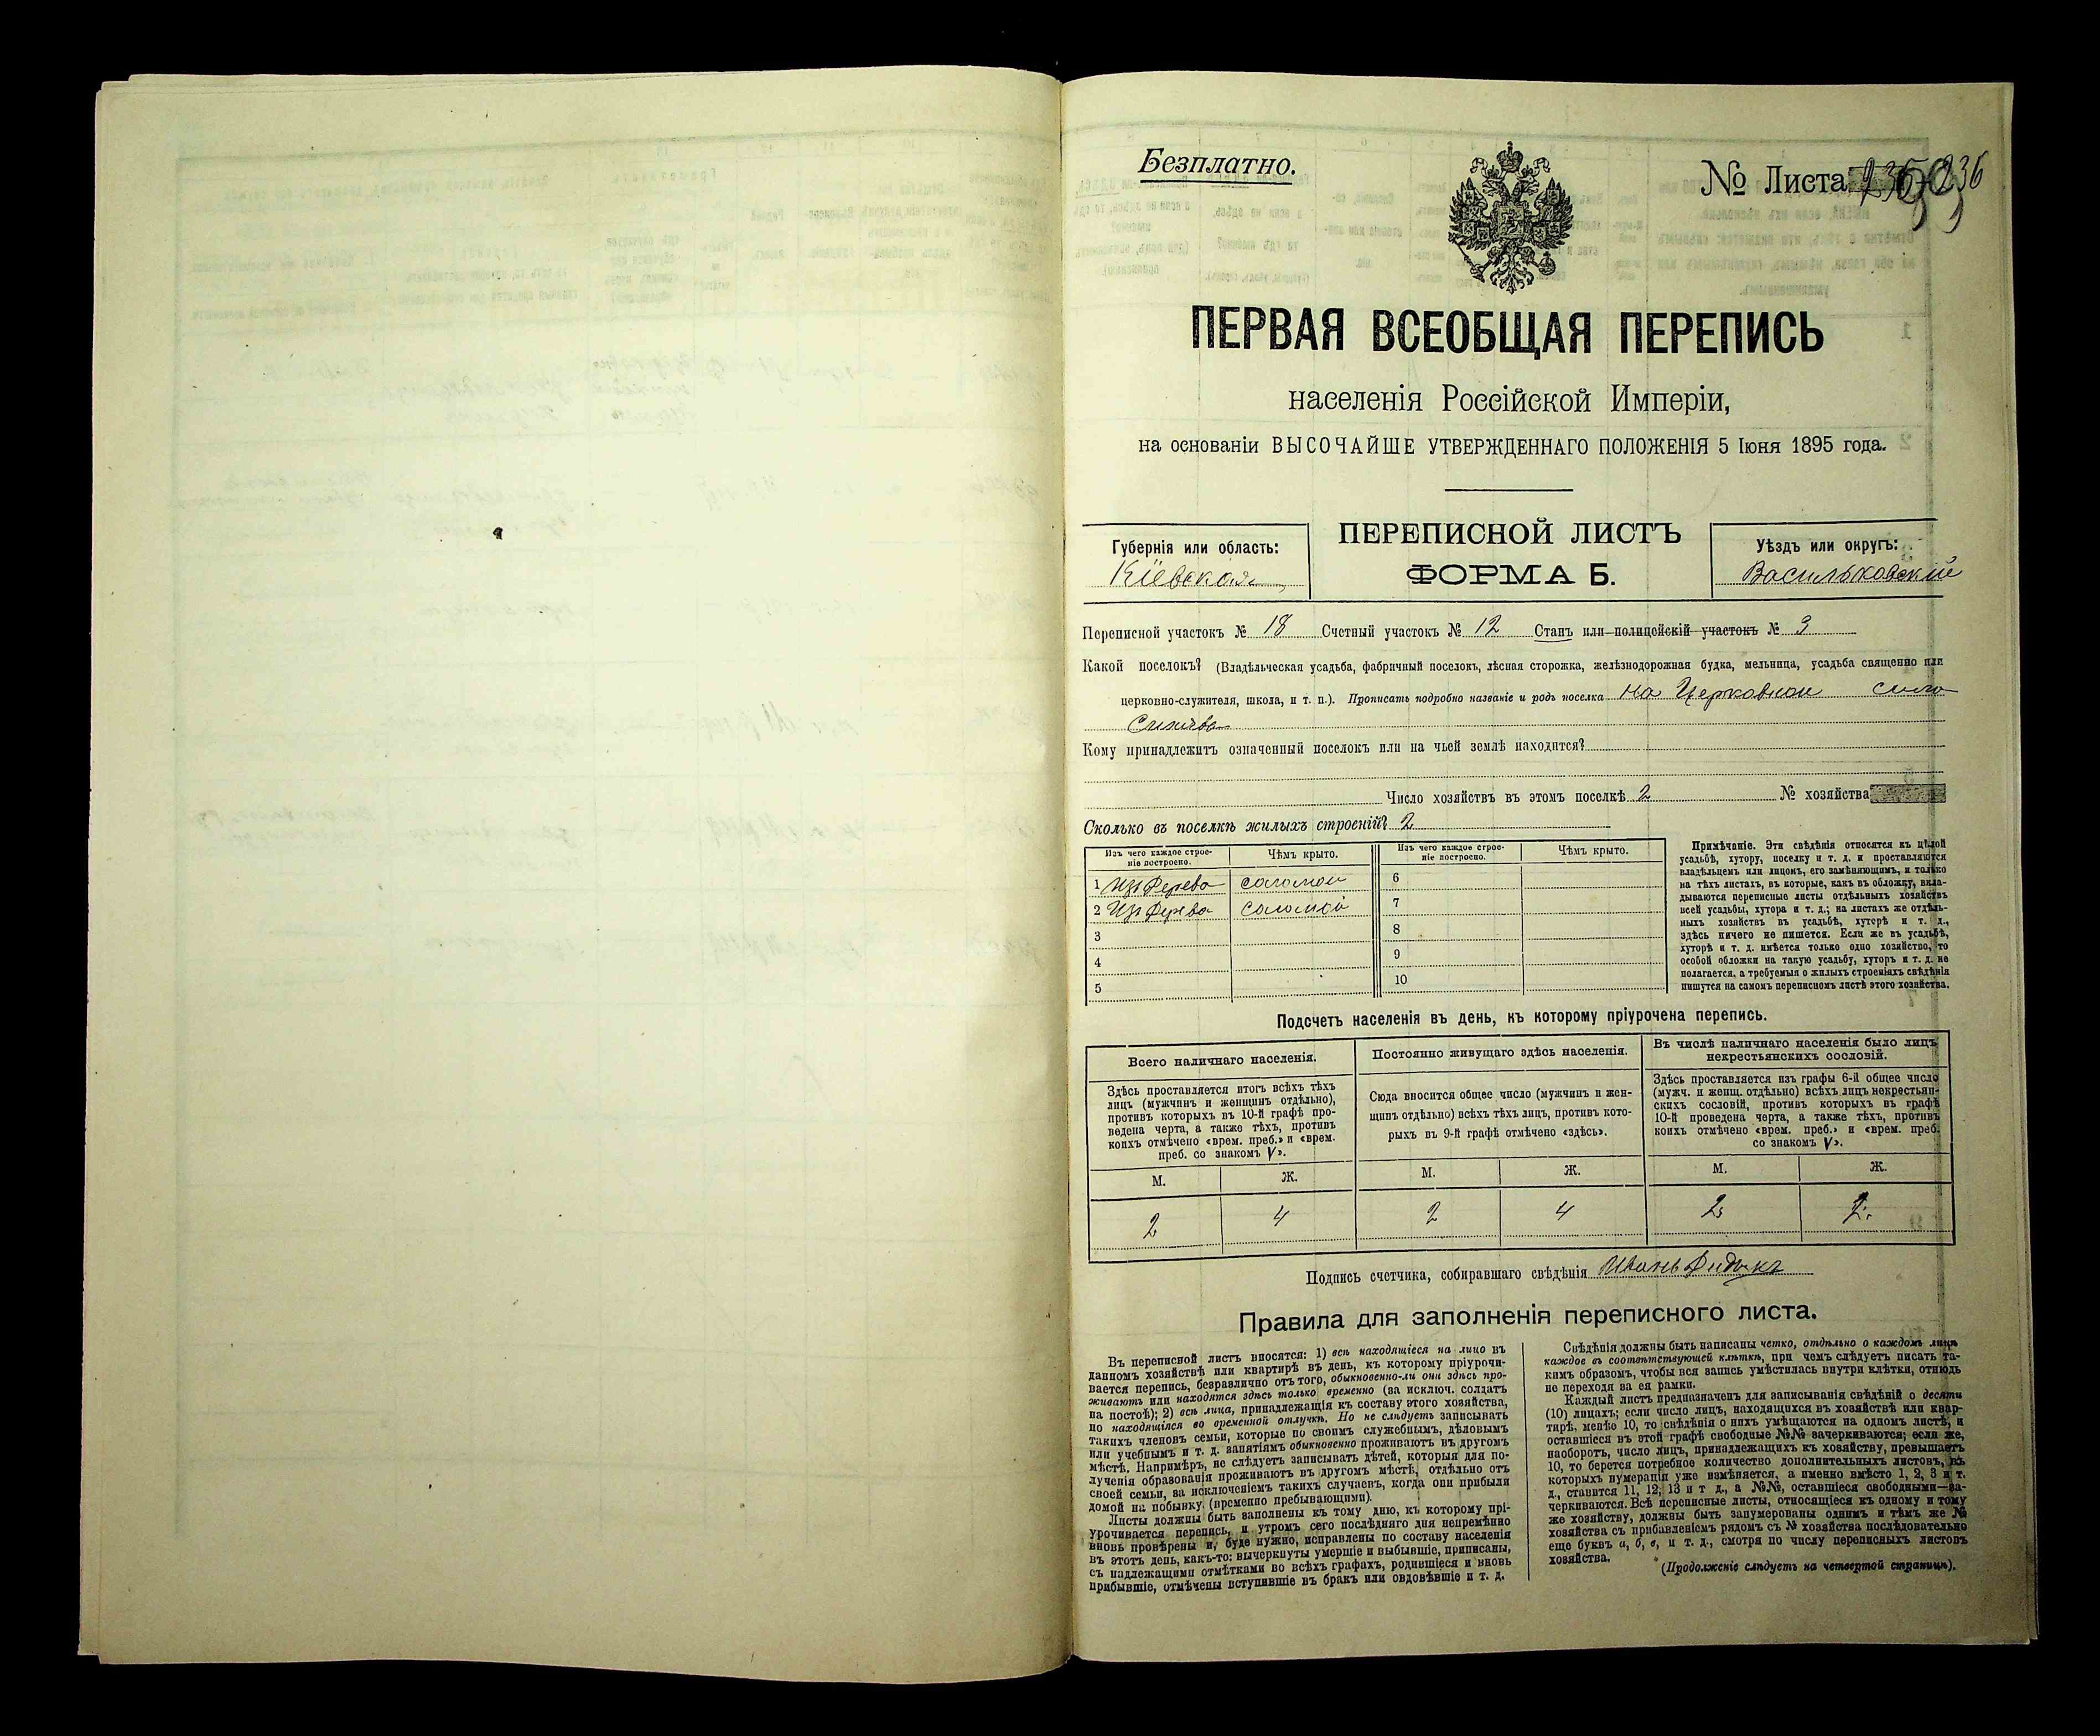 Безплатно.
№ Листа 236
ПЕРВАЯ ВСЕОБЩАЯ ПЕРЕПИСЬ
населенія Россійской Имперіи,
на основаніи ВЫСОЧАЙШЕ УТВЕРЖДЕННАГО ПОЛОЖЕНІЯ 5 Іюня 1895 года.
Губернія или область:
Кіевская
ПЕРЕПИСНОЙ ЛИСТЪ
ФОРМА Б.
Уѣздъ или округъ:
Васильковскій
Переписной участокъ № 18 Счетный участокъ № 12 Станъ или полицейскій участокъ № 3
Какой поселокъ? (Владѣльческая усадьба, фабричный поселокъ, лѣсная сторожка, желѣзнодорожная будка, мельница, усадьба священно или
церковно-служителя, школа, и т. п.). Прописать подробно названіе и родъ поселка на Церковной
Кому принадлежитъ означенный поселокъ или на чьей землѣ находится?
Число хозяйствъ въ этомъ поселкѣ 2 № хозяйства
Сколько въ поселкѣ жилыхъ строеній? 2
Изъ чего каждое строе-
ніе построено.
Чѣмъ крыто.
Изъ чего каждое строе-
ніе построено.
Чѣмъ крыто.
1 Изъ дерева соломой 6
2 Изъ дерева соломой 7
3 8
4 9
5 10
Примѣчаніе. Эти свѣдѣнія относятся къ цѣлой
усадьбѣ, хутору, поселку и т. д. и проставляются
владѣльцемъ или лицомъ, его замѣняющимъ, и только
на тѣхъ листахъ, въ которые, какъ въ обложку, вкла-
дываются переписные листы отдѣльныхъ хозяйствъ
всей усадьбы, хутора и т. д.; на листахъ же отдѣль-
ныхъ хозяйствъ въ усадьбѣ, хуторѣ и т. д.,
здѣсь ничего не пишется. Если же въ усадьбѣ,
хуторѣ и т. д. имѣется только одно хозяйство, то
особой обложки на такую усадьбу, хуторъ и т. д. не
полагается, а требуемыя о жилыхъ строеніяхъ свѣдѣнія
пишутся на самомъ переписномъ листѣ этого хозяйства.
Подсчетъ населенія въ день, къ которому пріурочена перепись.
Всего наличнаго населенія.
Здѣсь проставляется итогъ всѣхъ тѣхъ
лицъ (мужчинъ и женщинъ отдѣльно),
противъ которыхъ въ 10-й графѣ про-
ведена черта, а также тѣхъ, противъ
коихъ отмѣчено «врем. преб.» и «врем.
преб. со знакомъ V».
М. Ж.
2 4
Постоянно живущаго здѣсь населенія.
Сюда вносится общее число (мужчинъ и жен-
щинъ отдѣльно) всѣхъ тѣхъ лицъ, противъ кото-
рыхъ въ 9-й графѣ отмѣчено «здѣсь».
М. Ж.
2 4
Въ числѣ наличнаго населенія было лицъ
некрестьянскихъ сословій.
Здѣсь проставляется изъ графы 6-й общее число
(мужч. и женщ. отдѣльно) всѣхъ лицъ некрестьян-
скихъ сословій, противъ которыхъ въ графѣ
10-й проведена черта, а также тѣхъ, противъ
коихъ отмѣчено «врем. преб.» и «врем. преб.
со знакомъ V».
М. Ж.
2 2.
Подпись счетчика, собиравшаго свѣдѣнія Иванъ
Правила для заполненія переписного листа.
Въ переписной листъ вносятся: 1) всѣ находящіеся на лицо въ
данномъ хозяйствѣ или квартирѣ въ день, къ которому пріурочи-
вается перепись, безразлично отъ того, обыкновенно-ли они здѣсь про-
живаютъ или находятся здѣсь только временно (за исключ. солдатъ
на постоѣ); 2) всѣ лица, принадлежащія къ составу этого хозяйства,
но находящіяся во временной отлучкѣ. Но не слѣдуетъ записывать
такихъ членовъ семьи, которые по своимъ служебнымъ, дѣловымъ
или учебнымъ и т. д. занятіямъ обыкновенно проживаютъ въ другомъ
мѣстѣ. Напримѣръ, не слѣдуетъ записывать дѣтей, которыя для по-
лученія образованія проживаютъ въ другомъ мѣстѣ, отдѣльно отъ
своей семьи, за исключеніемъ такихъ случаевъ, когда они прибыли
домой на побывку (временно пребывающими).
Листы должны быть заполнены къ тому дню, къ которому прі-
урочивается перепись, и утромъ сего послѣдняго дня непремѣнно
вновь провѣрены и, буде нужно, исправлены по составу населенія
въ этотъ день, какъ-то: вычеркнуты умершіе и выбывшіе, приписаны,
съ надлежащими отмѣтками во всѣхъ графахъ, родившіеся и вновь
прибывшіе, отмѣчены вступившіе въ бракъ или овдовѣвшіе и т. д.
Свѣдѣнія должны быть написаны четко, отдѣльно о каждомъ лицѣ
каждое въ соотвѣтствующей клѣткѣ, при чемъ слѣдуетъ писать та-
кимъ образомъ, чтобы вся запись умѣстилась внутри клѣтки, отнюдь
не переходя за ея рамки.
Каждый листъ предназначенъ для записыванія свѣдѣній о десяти
(10) лицахъ; если число лицъ, находящихся въ хозяйствѣ или квар-
тирѣ, менѣе 10, то свѣдѣнія о нихъ умѣщаются на одномъ листѣ, и
оставшіеся въ этой графѣ свободные №№ зачеркиваются; если же,
наоборотъ, число лицъ, принадлежащихъ къ хозяйству, превышаетъ
10, то берется потребное количество дополнительныхъ листовъ, въ
которыхъ нумерація уже измѣняется, а именно вмѣсто 1, 2, 3 и т.
д., ставится 11, 12, 13 и т д., а №№, оставшіеся свободными—за-
черкиваются. Всѣ переписные листы, относящіеся къ одному и тому
же хозяйству, должны быть занумерованы однимъ и тѣмъ же №
хозяйства съ прибавленіемъ рядомъ съ № хозяйства послѣдовательно
еще буквъ а, б, в, и т. д., смотря по числу переписныхъ листовъ
хозяйства.
(Продолженіе слѣдуетъ на четвертой страницѣ).